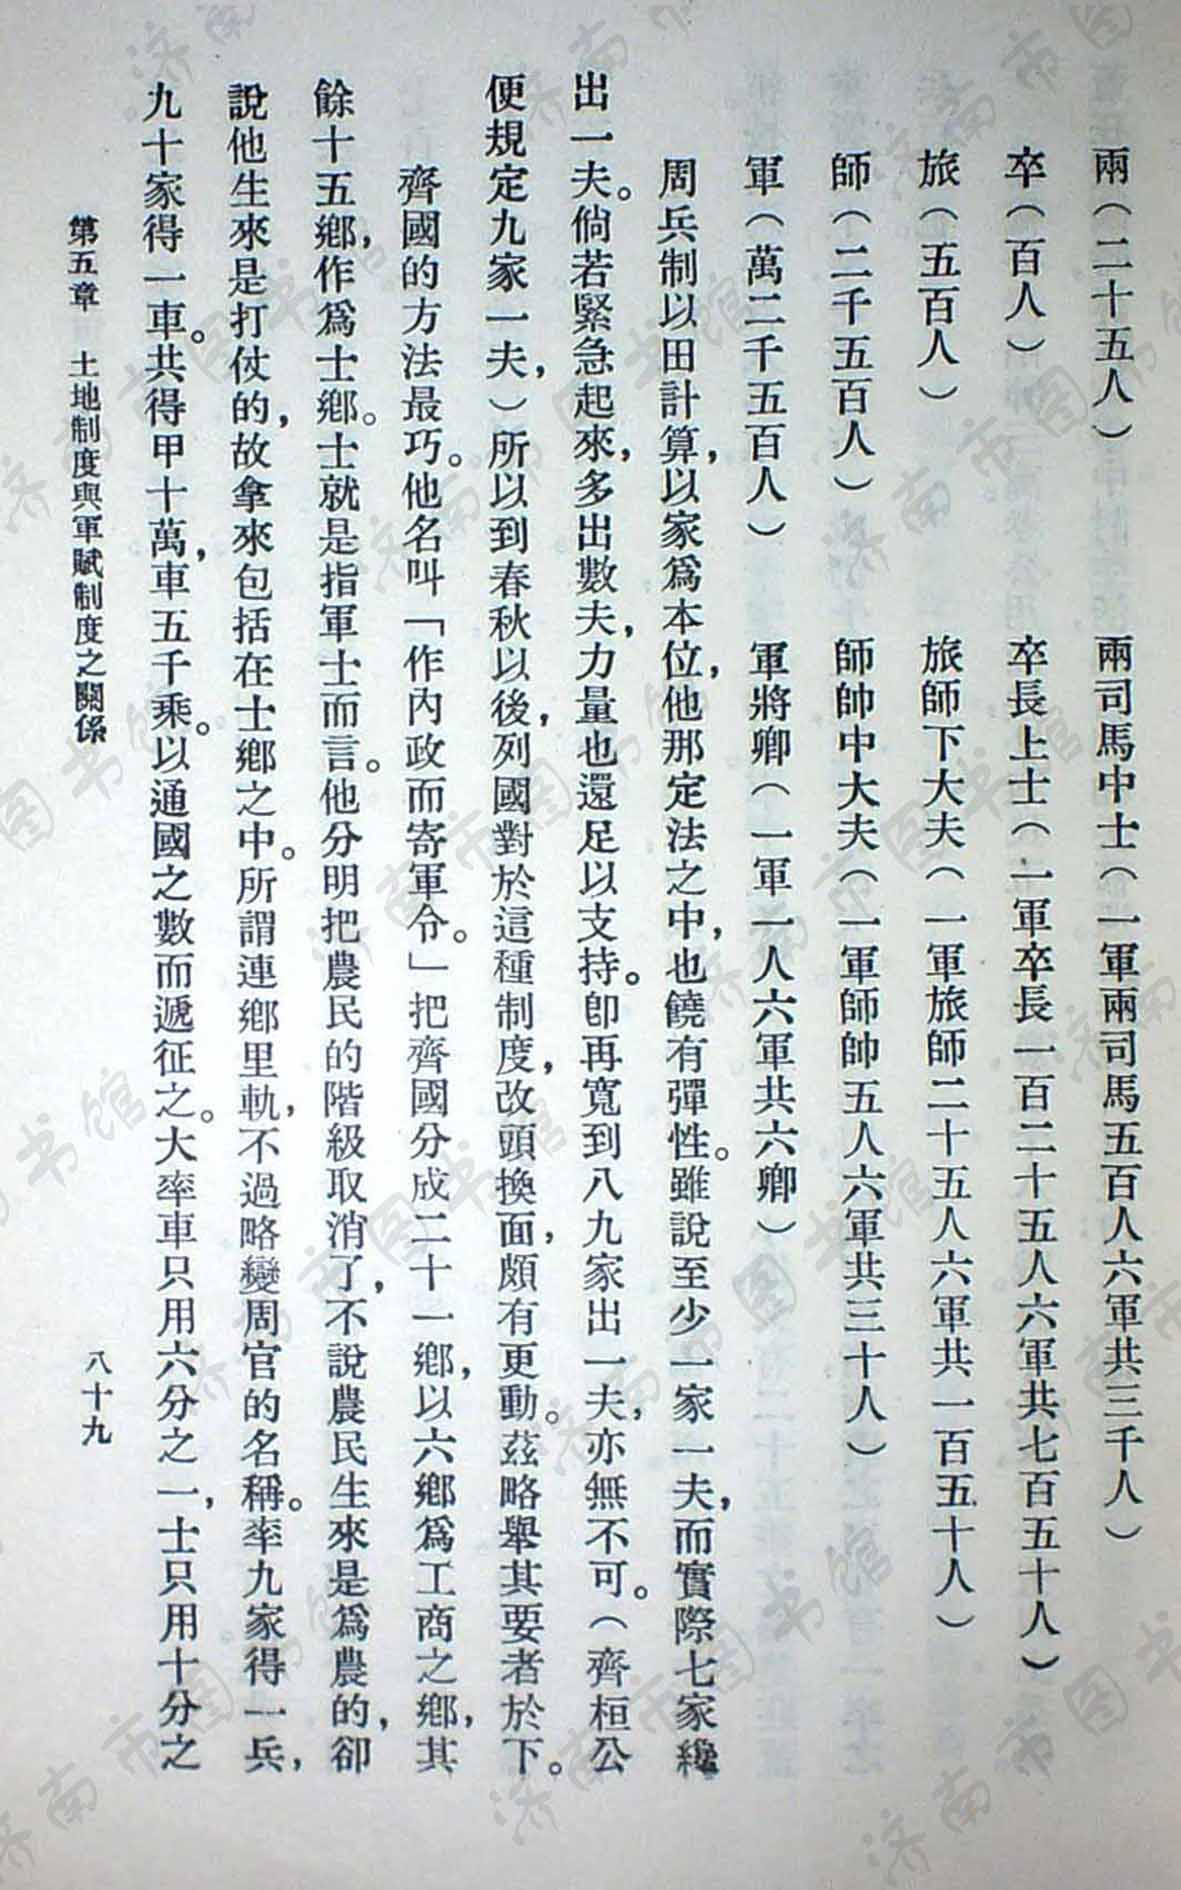 兩（二十五人）　兩司馬中士（一軍兩司馬五百人六軍共三千人）
卒（百人）　卒長上士（一軍卒長一百二十五人六軍共七百五十人）
旅（五百人）　旅師下大夫（一軍旅師二十五人六軍共一百五十人）
師（二千五百人）　師帥中大夫（一軍師帥五人六軍共三十人）
軍（萬二千五百人）　軍將卿（一軍一人六軍共六卿）
周兵制以田計算，以家爲本位，他那定法之中，也饒有彈性。雖說至少一家一夫，而實際七家纔
出一夫。倘若緊急起來，多出數夫，力量也還足以支持。卽再寬到八九家出一夫，亦無不可。（齊桓公
便規定九家一夫，）所以到春秋以後，列國對於這種制度，改頭換面，頗有更動。茲略舉其要者於下。
齊國的方法最巧。他名叫「作內政而寄軍令。」把齊國分成二十一鄉，以六鄉爲工商之鄉，其
餘十五鄉，作爲士鄉。士就是指軍士而言。他分明把農民的階級取消了，不說農民生來是爲農的，卻
說他生來是打仗的，故拿來包括在士鄉之中。所謂連鄉里軌，不過略變周官的名稱。率九家得一兵，
九十家得一車。共得甲十萬，車五千乘。以通國之數而遞征之。大率車只用六分之一，士只用十分之
第五章　土地制度與軍賦制度之關係
八十九
济南市图书馆